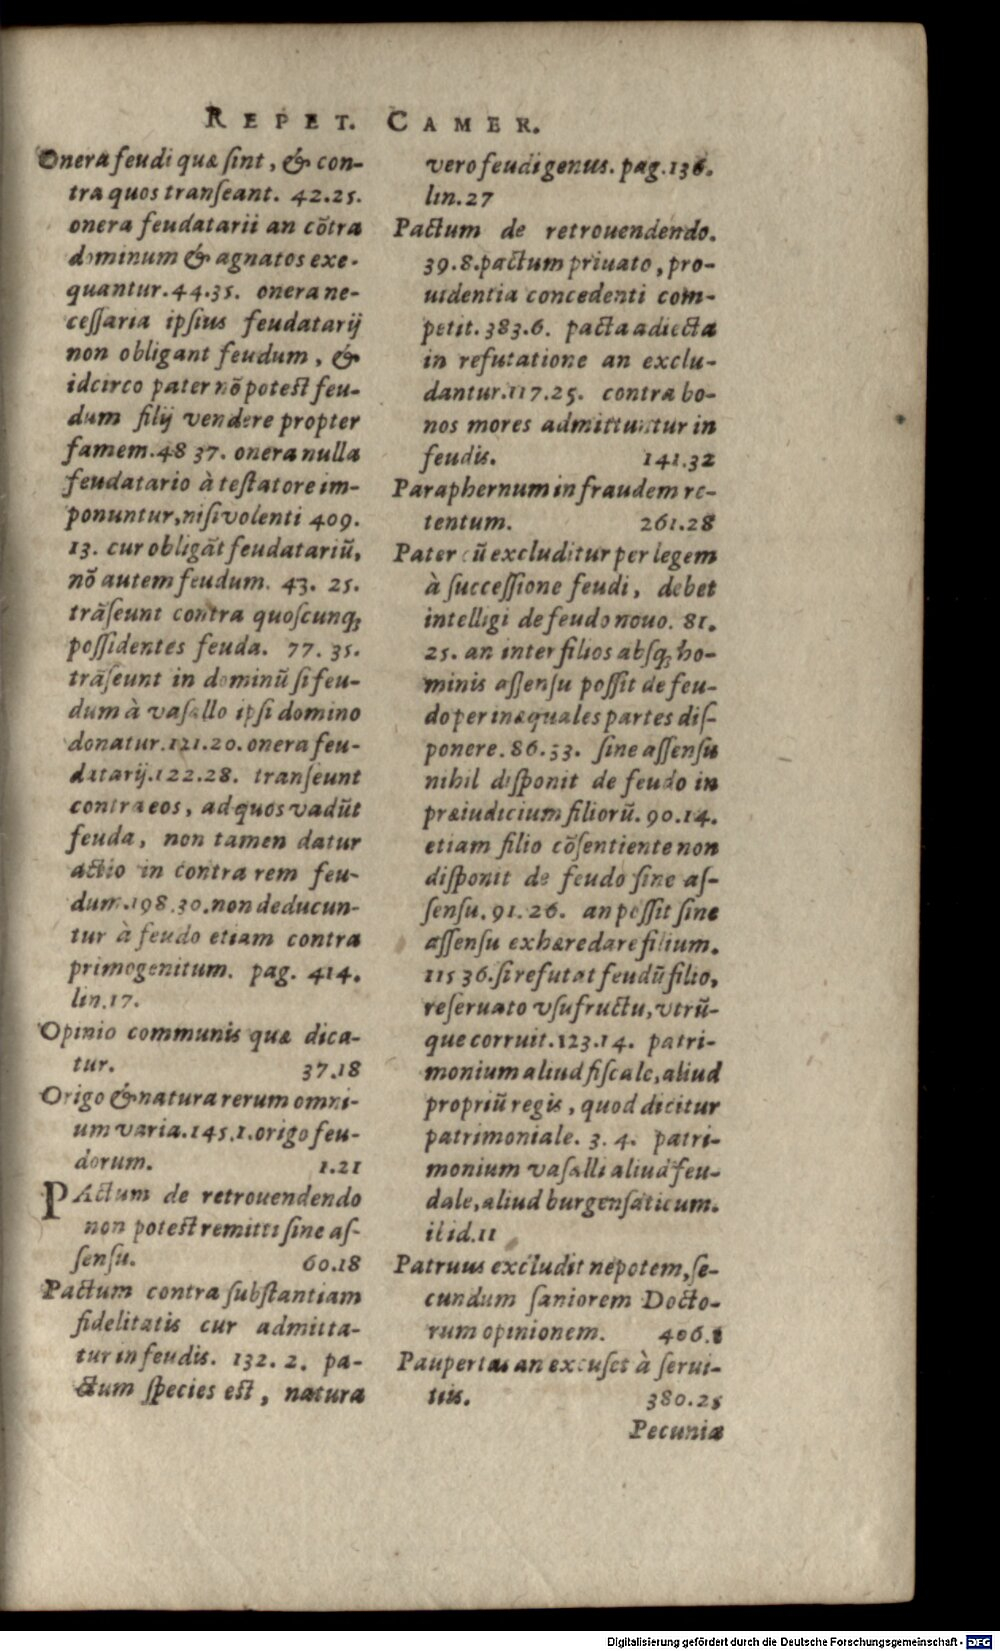 REPET. CAMER.
Onera feudi quæ sint, & con-
tra quos transeant. 42.25.
onera feudatarii an cõtra
dominum & agnatos exe-
quantur.44.35. onera ne-
cessaria ipsius feudatarij
non obligant feudum, &
idcirco pater nõ potest feu-
dum filij vendere propter
famem.48 37. onera nulla
feudatario à testatore im-
ponuntur, nisi volenti 409.
13. cur obligãt feudatariũ,
nõ autem feudum. 43. 25.
trãseunt contra quoscunq;
possidentes feuda. 77. 35.
trãseunt in dominũ si feu-
dum à vasallo ipsi domino
donatur.121.20. onera feu-
datarij.122.28. transeunt
contra eos, ad quos vadũt
feuda, non tamen datur
actio in contra rem feu-
dum.198.30. non deducun-
tur à feudo etiam contra
primogenitum. pag. 414.
lin.17.
Opinio communis quæ dica-
tur. 37.18
Origo & natura rerum omni-
um varia.145.1. origo feu-
dorum. 1.21
PActum de retrouendendo
non potest remitti sine as-
sensu. 60.18
Pactum contra substantiam
fidelitatis cur admitta-
tur in feudis. 132. 2. pa-
ctum species est, natura
vero feudi genus. pag.136.
lin.27
Pactum de retrouendendo.
39.8. pactum priuato, pro-
uidentia concedenti com-
petit. 383.6. pacta adiecta
in refutatione an exclu-
dantur.117.25. contra bo-
nos mores admittuntur in
feudis. 141.32
Paraphernum in fraudem re-
tentum. 261.28
Pater cũ excluditur per legem
à successione feudi, debet
intelligi de feudo nouo. 81.
25. an inter filios absq; ho-
minis assensu possit de feu-
do per inæquales partes dis-
ponere. 86.33. sine assensu
nihil disponit de feudo in
præiudicium filiorũ. 90.14.
etiam filio cõsentiente non
disponit de feudo sine as-
sensu. 91.26. an possit sine
assensu exhæredare filium.
115 36. si refutat feudũ filio,
reseruato vsufructu, vtrũ-
que corruit.123.14. patri-
monium aliud fiscale, aliud
propriũ regis, quod dicitur
patrimoniale. 3. 4. patri-
monium vasalli aliud feu-
dale, aliud burgensaticum.
ibid.11
Patruus excludit nepotem, se-
cundum saniorem Docto-
rum opinionem. 406.1
Paupertas an excuset à serui-
tiis. 380.25
Pecuniæ
Digitalisierung gefördert durch die Deutsche Forschungsgemeinschaft - DFG